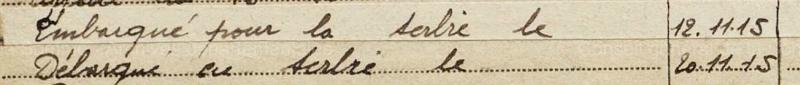 Embarqué pour la Serbie le 12.11.15
Débarqué en Serbie le 20.11.15